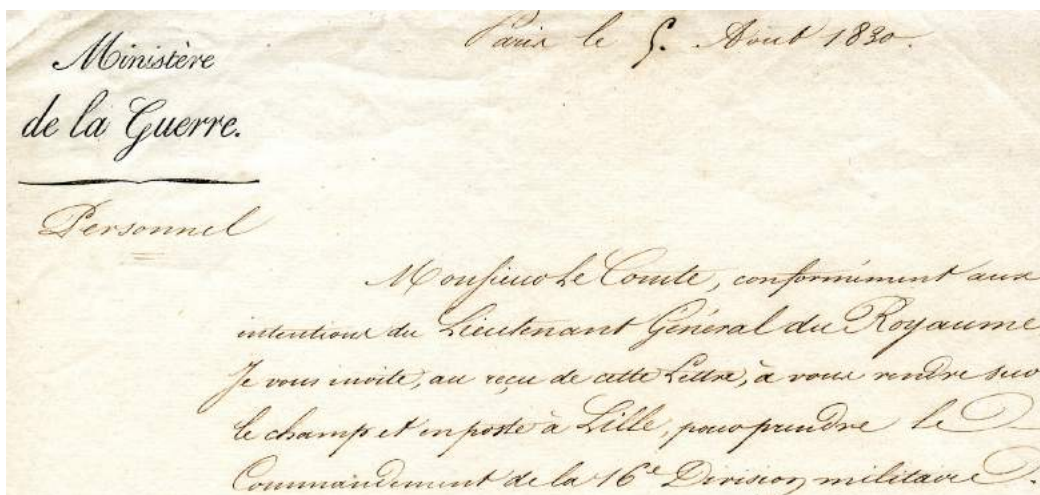 Ministère
de la Guerre.
Paris le 5. Aout 1830.
Personnel
Monsieur le Comte, conformément aux
intentions du Lieutenant Général du Royaume
Je vous invite, au reçu de cette Lettre, à vous rendre sur
le champ et en poste à Lille, pour prendre le
Commandement de la 16e Division militaire.